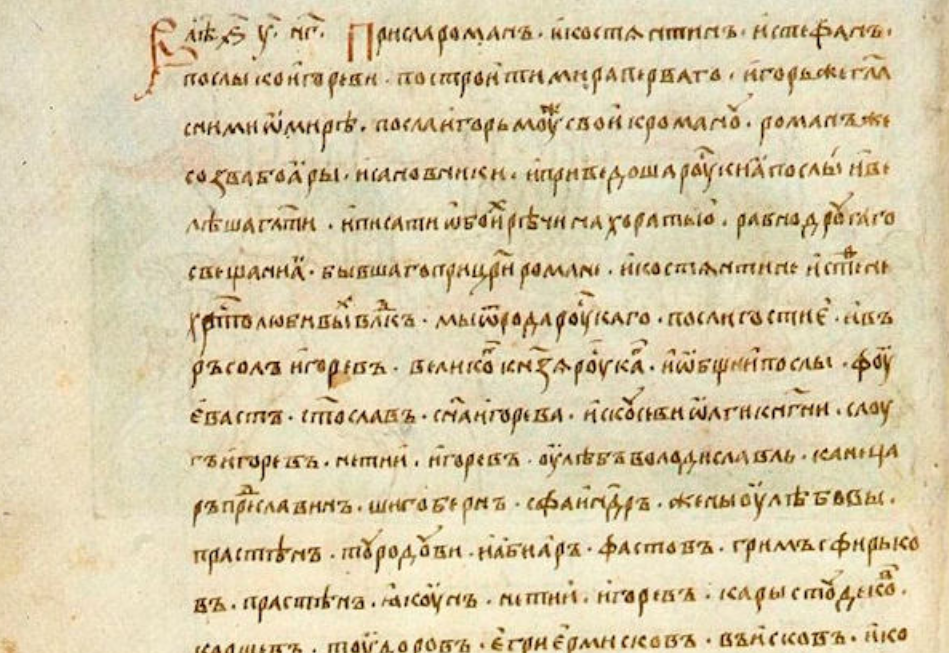 В лѣⷮ ҂ѕ҃ у҃ н҃г · Присла романъ · и костѧнтинъ · и стефанъ ·
послы ко игореви · построити мира перваго · игорь же гл҃а
с ними ѡ мирѣ · посла игорь моу́жⷤ свои к романоу҆ · романъ же
созва боѧры · и сановники · и приведоша роу́скиа послы и ве
лѣша гл҃ати · и писати ѡбои́хъ рѣчи на хоратью · равно дроугаго
свещаниа · бывшаго при цр҃и романе · и костѧнтине и стеⷴне
хрⷭ҇толюбивыⷯ влⷣкъ · мы ѿ рода роу́скаго · посли и гостие · ивъ
ръ солъ игоревъ · великоⷢ кнѧзѧ роускаⷢ · и ѡбщии послы · фоу
евастъ · ст҃ославъ · сн҃а игорева · искоусеви ѡлги кнг҃ни · слоу
гъ игоревъ · нетии · игоревъ · оулѣбъ володиславль · каница
ръ преⷣславинъ · шигобернъ · сфаинⷣръ · жены оулѣбовы ·
прастѣнъ · тоуродоуви · либиаръ · фастовъ · гримъ сфирько
въ · прастѣнъ · ꙗкоунъ · нетии · игоревъ · кары стоудекоⷡ ·
каршевъ · тоудоровъ · егри ермисковъ · въисковъ · ико